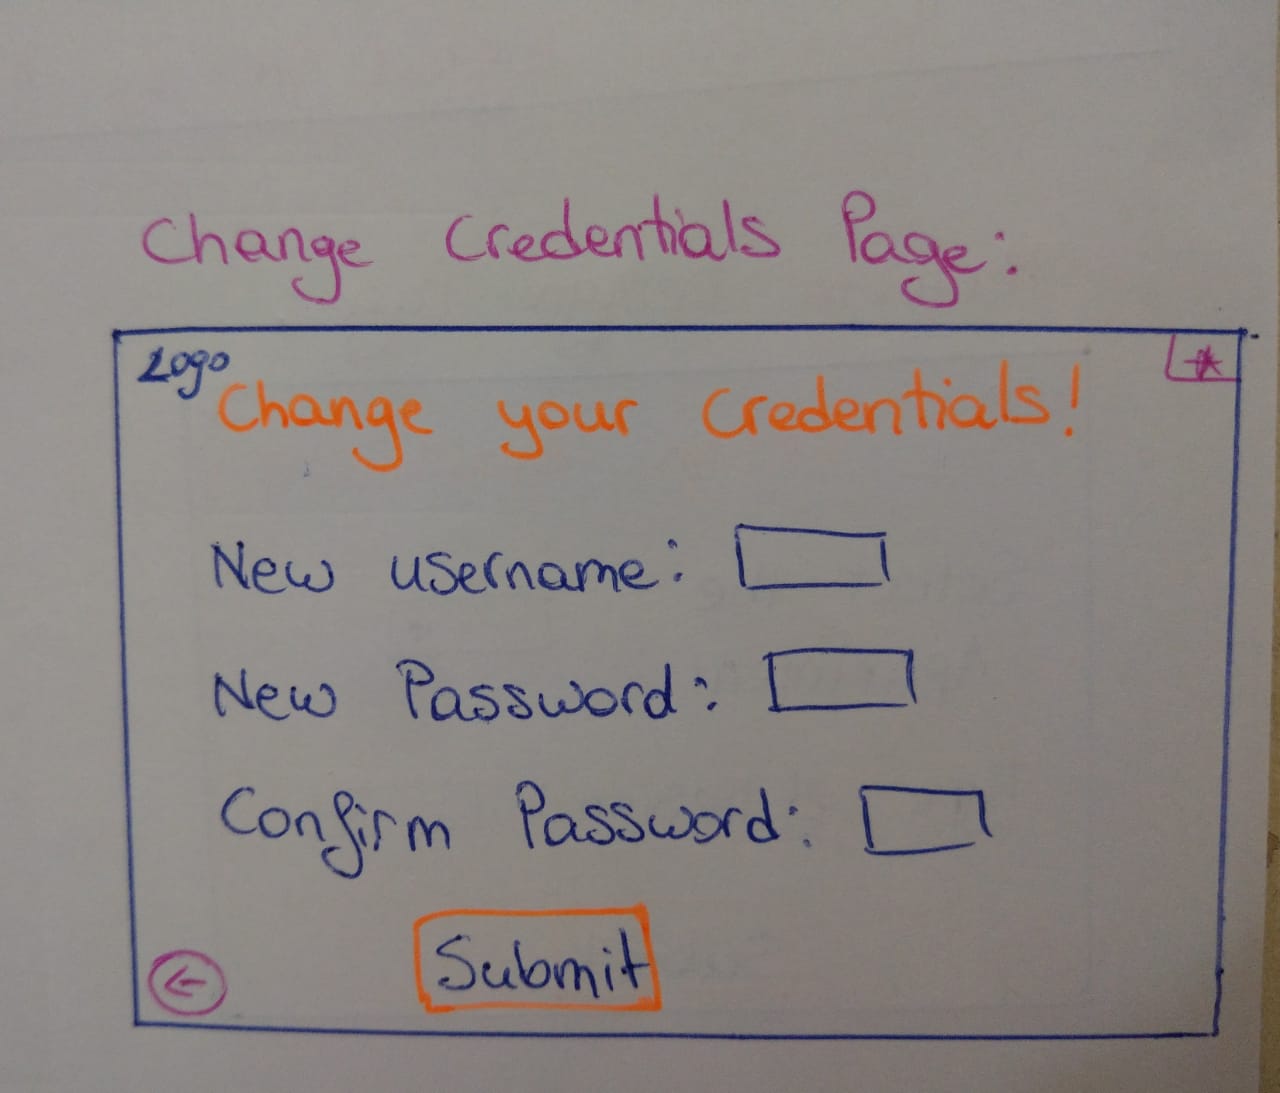 Change Credentials Page:
Logo
Change your Credentials!
New username:
New Password:
Confirm Password:
Submit